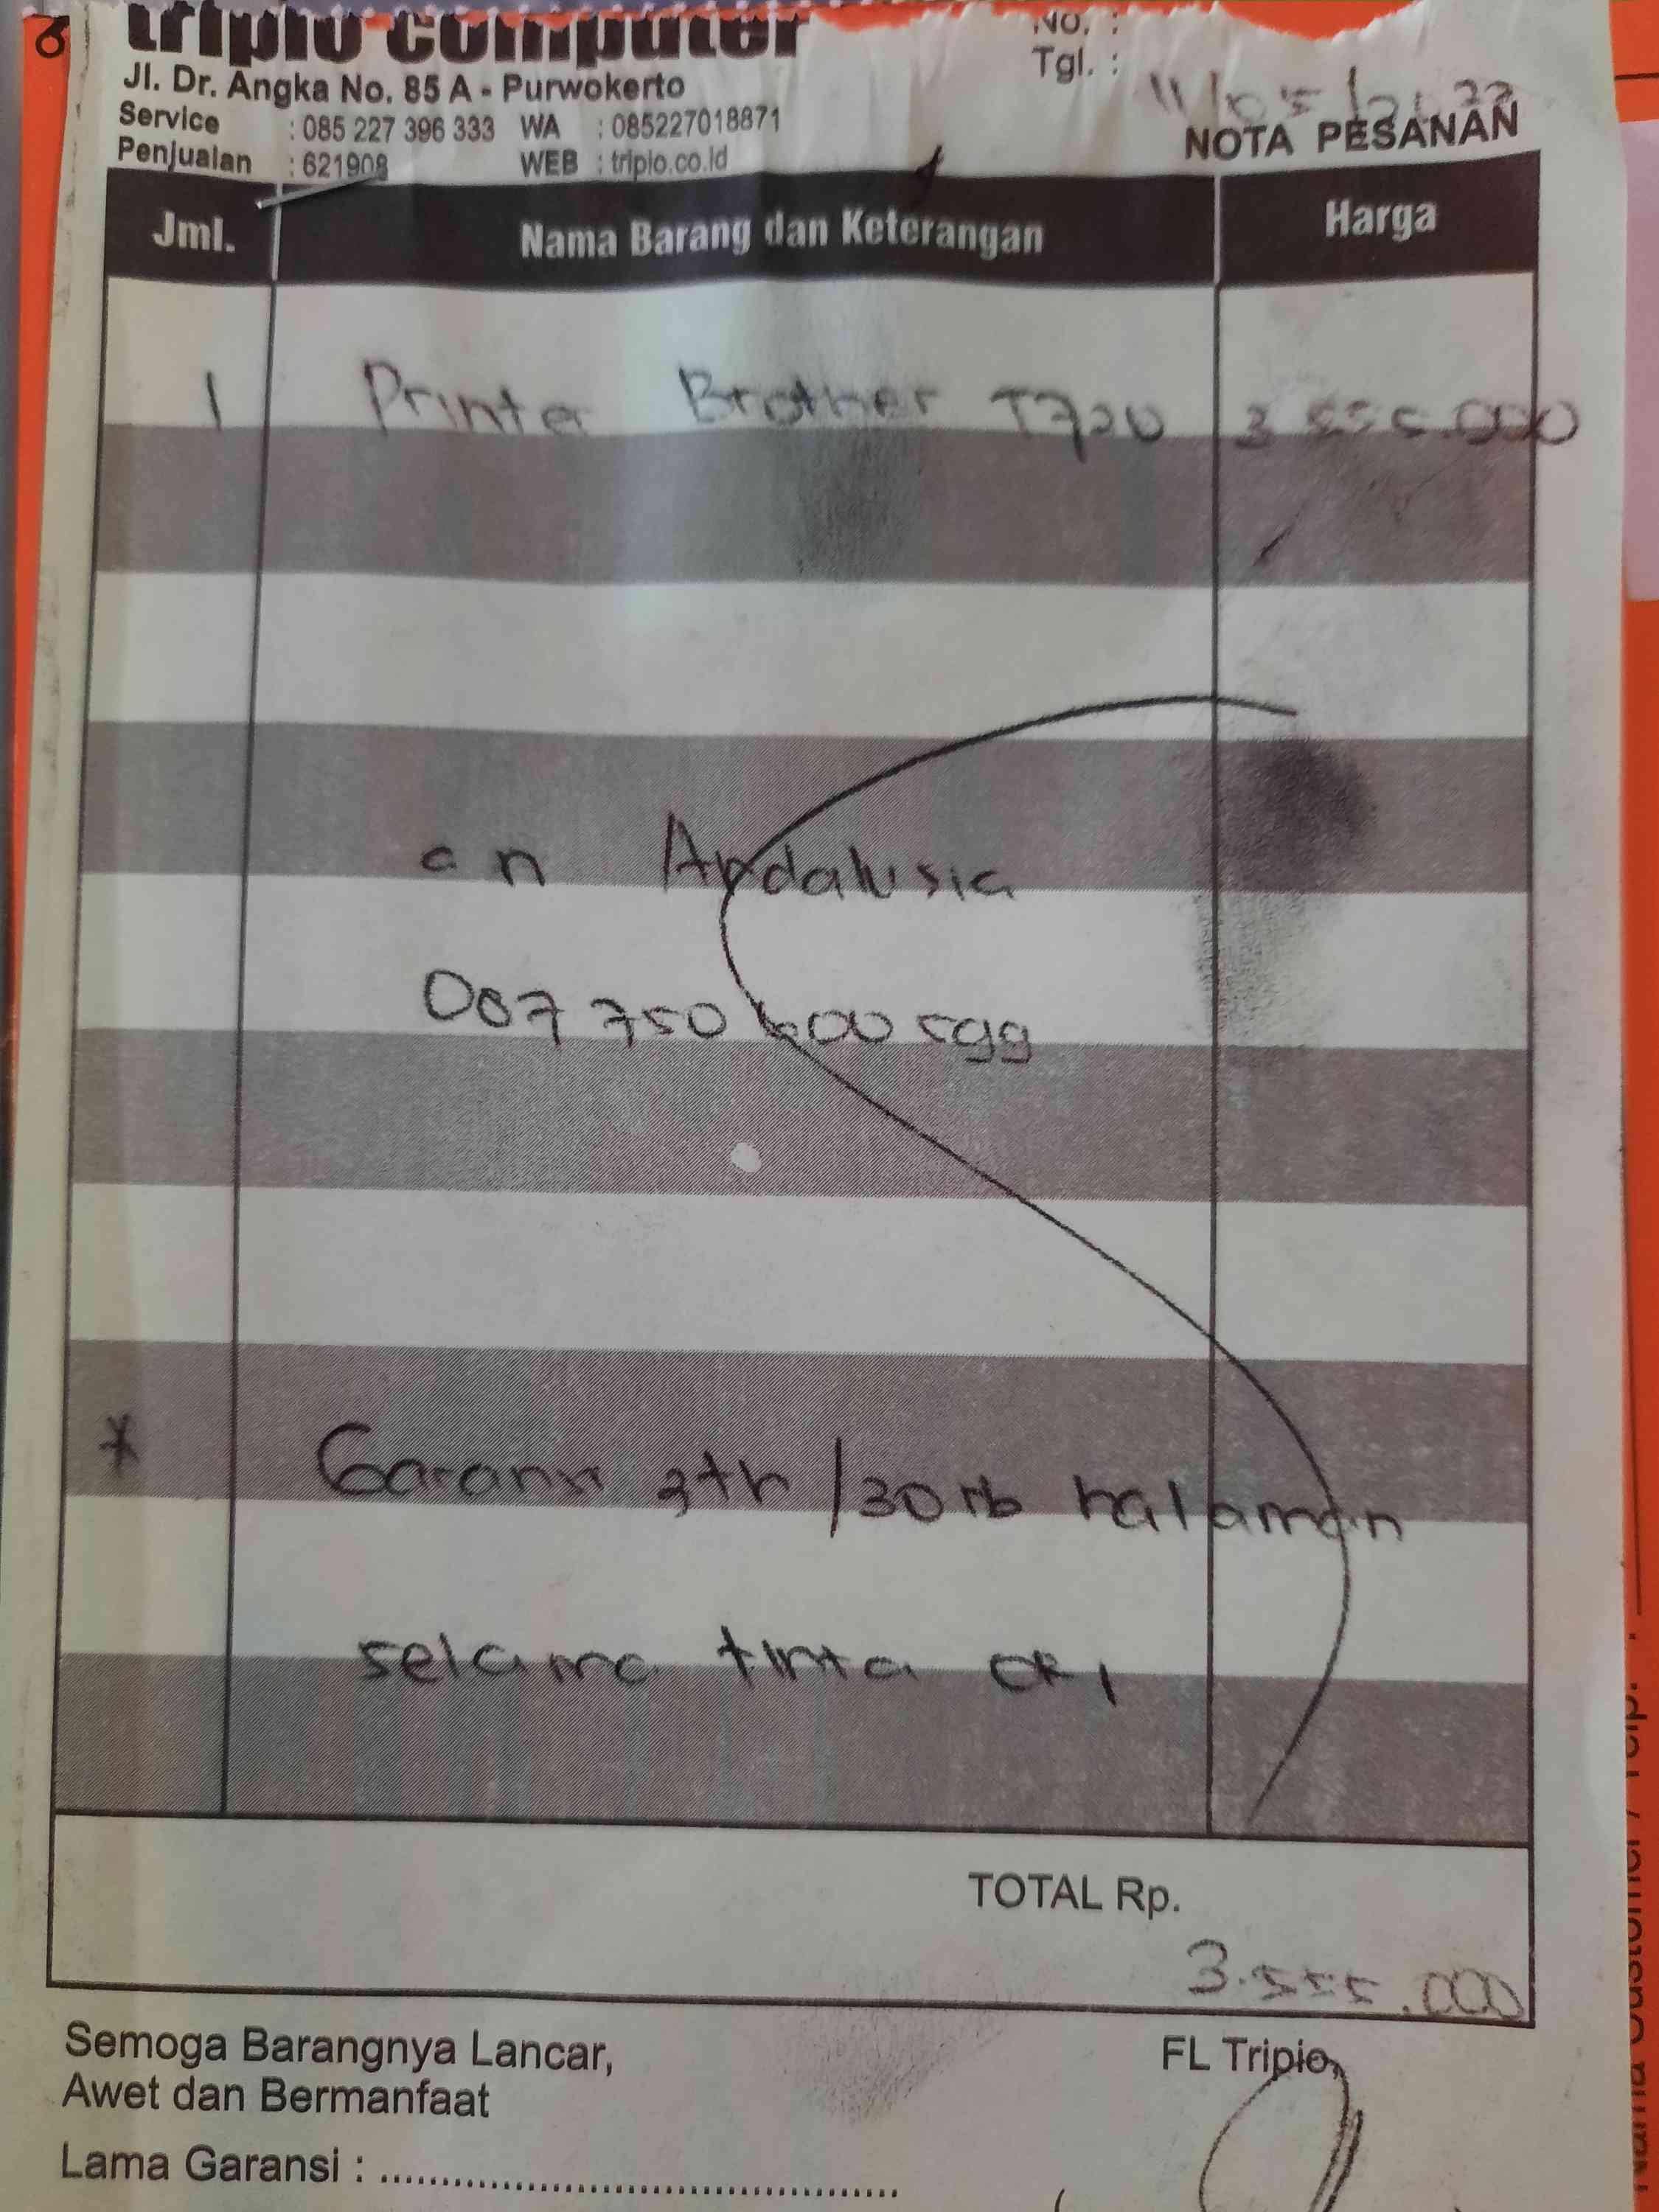 tripio computer
Jl. Dr. Angka No. 85 A - Purwokerto
Service : 085 227 396 333 WA : 085227018871
Penjualan : 621908 WEB : tripio.co.id
No. :
Tgl. : 11/05/2022
NOTA PESANAN
Jml. Nama Barang dan Keterangan Harga
1 Printer Brother T720 3.555.000
an Andalusia
087 750 600 599
* Garansi 3th /30rb halaman
selama tinta ori
TOTAL Rp.
3.555.000
Semoga Barangnya Lancar,
Awet dan Bermanfaat
FL Tripio,
Lama Garansi : ........................................
Nama Customer / Telp. :